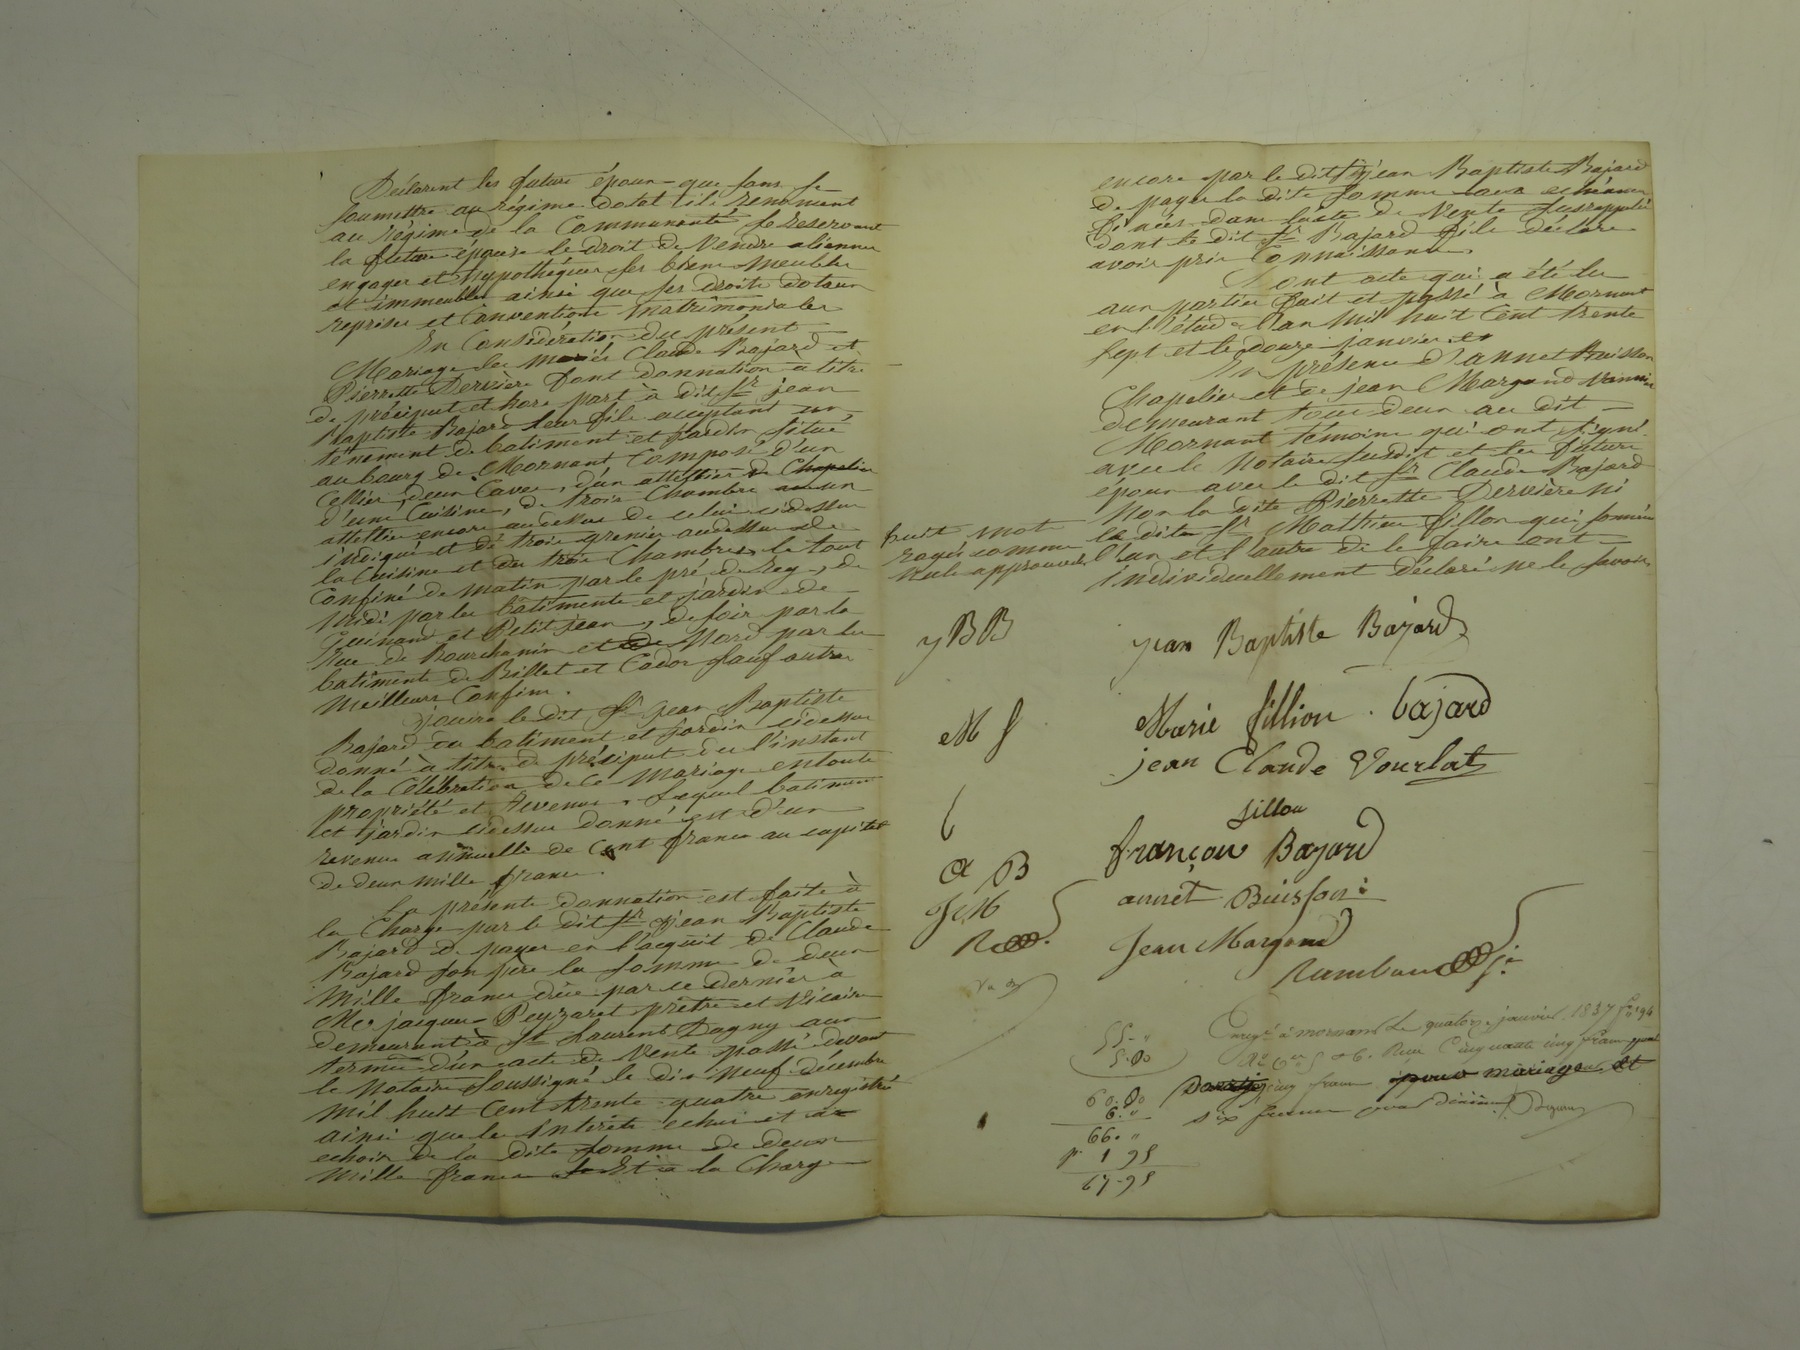 Déclarent les futurs époux que sans se
soumettre au régime dotal ils renoncent
au régime de la Communauté se reservant
la future épouse le droit de Vendre aliénner
engager et hypothéquer ses biens meubles
et immeubles ainsi que ses droits dotaux
reprises et Conventions matrimoniales
En Considération du présent
Mariage les mariés Claude Bajard et
Pierrette Dervière font donnation à titre
de préciput et hors part à dit Sr jean
Baptiste Bajard leur fils acceptant un
ténement de batiment et jardin situé
au bourg de Mornant Composé d'un
Cellier, deux Caves, d'un attellier de Chapelier
d'une Cuisine, de trois Chambres un
attellier encore audessus de celui cidessus
indiqué et de trois greniers audessus de
la Cuisine et des trois Chambres, le tout
Confiné de matin par le pré de Rey, de
midi par les bâtiments et jardin de
Guinand et Petitjean, de soir par la
Rue de Bourchanin et de Nord par les
batiments de Billet et Cador sauf autres
meilleurs Confins.
Jouira le dit Sr jean Baptiste
Bajard du batiment et jardin cidessus
donné à titre de préciput dès l'instant
de la Célébration de ce mariage en toute
propriété et revenus, lequel batiment
et jardin cidessus donné est d'un
revenu annuelle de Cent francs au capital
de deux mille francs.
La présente donnation est faite à
la Charge par le dit Sr jean Baptiste
Bajard de payer en l'acquit de Claude
Bajard son père la somme de deux
mille francs düe par ce dernier à
Mr jacques Peyzaret prêtre et Vicaire
demeurant à St Laurent Dagny aux
termes d'un acte de Vente passé devant
le Notaire soussigné le dix neuf décembre
mil huit Cent trente quatre enregistré
ainsi que les intérêts echus et à
echoir de la dite somme de deux
mille francs Et à la Charge
encore par le dit Sr jean Baptiste Bajard
de payer la dite somme aux echéances
fixées dans l'acte de Vente susrappelé
dont le dit Sr Bajard fils déclare
avoir pris Connaissance.
Dont acte qui a été lu
aux parties fait et passé à Mornant
en l'étude l'an mil huit Cent trente
sept et le douze janvier
En présence d'annet Buisson
Chapelier et de jean Margand
demeurant tous deux au dit
Mornant témoins qui ont signé
avec le Notaire susdit et les futurs
époux avec le dit Sr Claude Bajard
Non la dite Pierrette Dervière ni
le dit Sr Mathieu fillon qui sommés
l'un et l'autre de le faire ont
individuellement déclaré ne le savoir
huit mots
rayés comme
nuls approuvés
jBB
jean Baptiste Bajard
M f
Marie fillion . bajard
jean Claude Vourlat
fillon
françois Bajard
a B
annet Buisson
JM
Jean Margand
Enregé à mornant Le quatorze janvier 1837
Reçu Cinquante cinq francs
cinq francs pour mariage et
six francs pour dixième
55 "
5.50
60.50
6. "
66. "
1 95
67-95